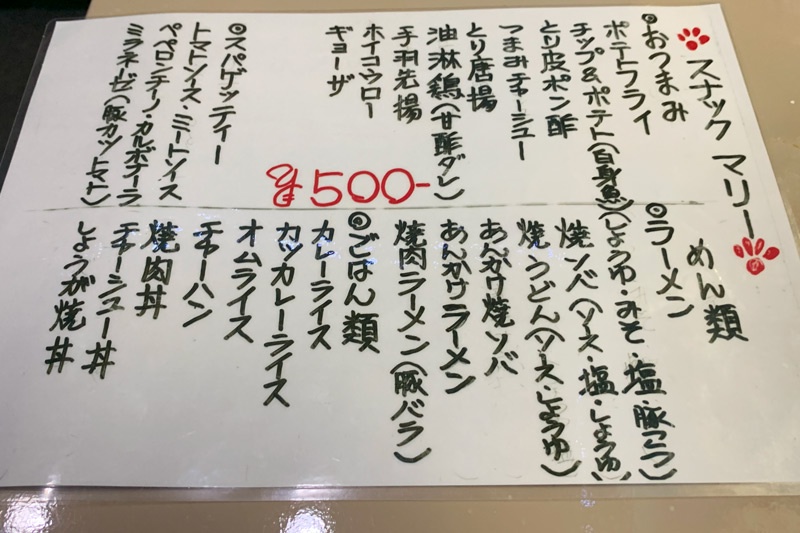 スナック マリー
⦿おつまみ
ポテトフライ
チップ&ポテト(白身魚)
とり皮ポン酢
つまみチャーシュー
とり唐揚
油淋鶏(甘酢ダレ)
手羽先揚
ホイコウロー
ギョーザ
⦿スパゲッティー
トマトソース・ミートソース
ペペロンチーノ・カルボナーラ
ミラネーゼ(豚カツトマト)
500-
めん類
⦿ラーメン
(しょうゆ・みそ・塩・豚こつ)
焼ソバ(ソース・塩・しょうゆ)
焼うどん(ソース・しょうゆ)
あんかけ焼ソバ
あんかけラーメン
焼肉ラーメン(豚バラ)
⦿ごはん類
カレーライス
カツカレーライス
オムライス
チャーハン
焼肉丼
チャーシュー丼
しょうが焼丼